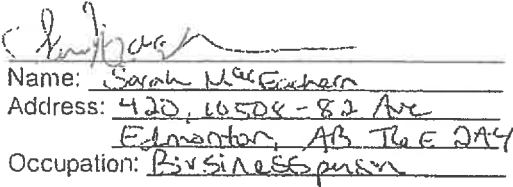 Name: Sarah MacEachern
Address: 420, 10508-82 Ave
Edmonton, AB T6E 2A4
Occupation: Businessperson